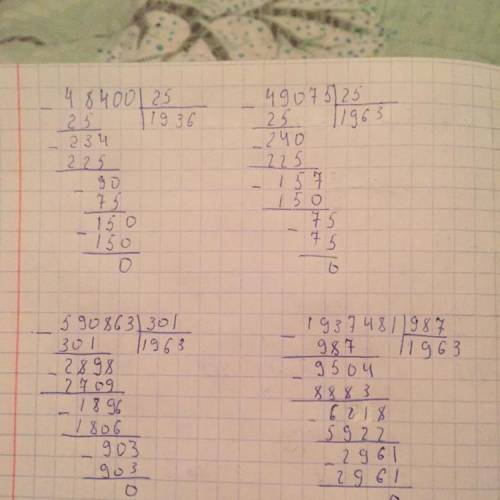 - 48400 | 25
25 | 1936
- 234
225
- 90
75
- 150
150
0
- 49075 | 25
25 | 1963
- 240
225
- 157
150
- 75
75
0
- 590863 | 301
301 | 1963
- 2898
2709
- 1896
1806
- 903
903
0
- 1937481 | 987
987 | 1963
- 9504
8883
- 6218
5922
- 2961
2961
0